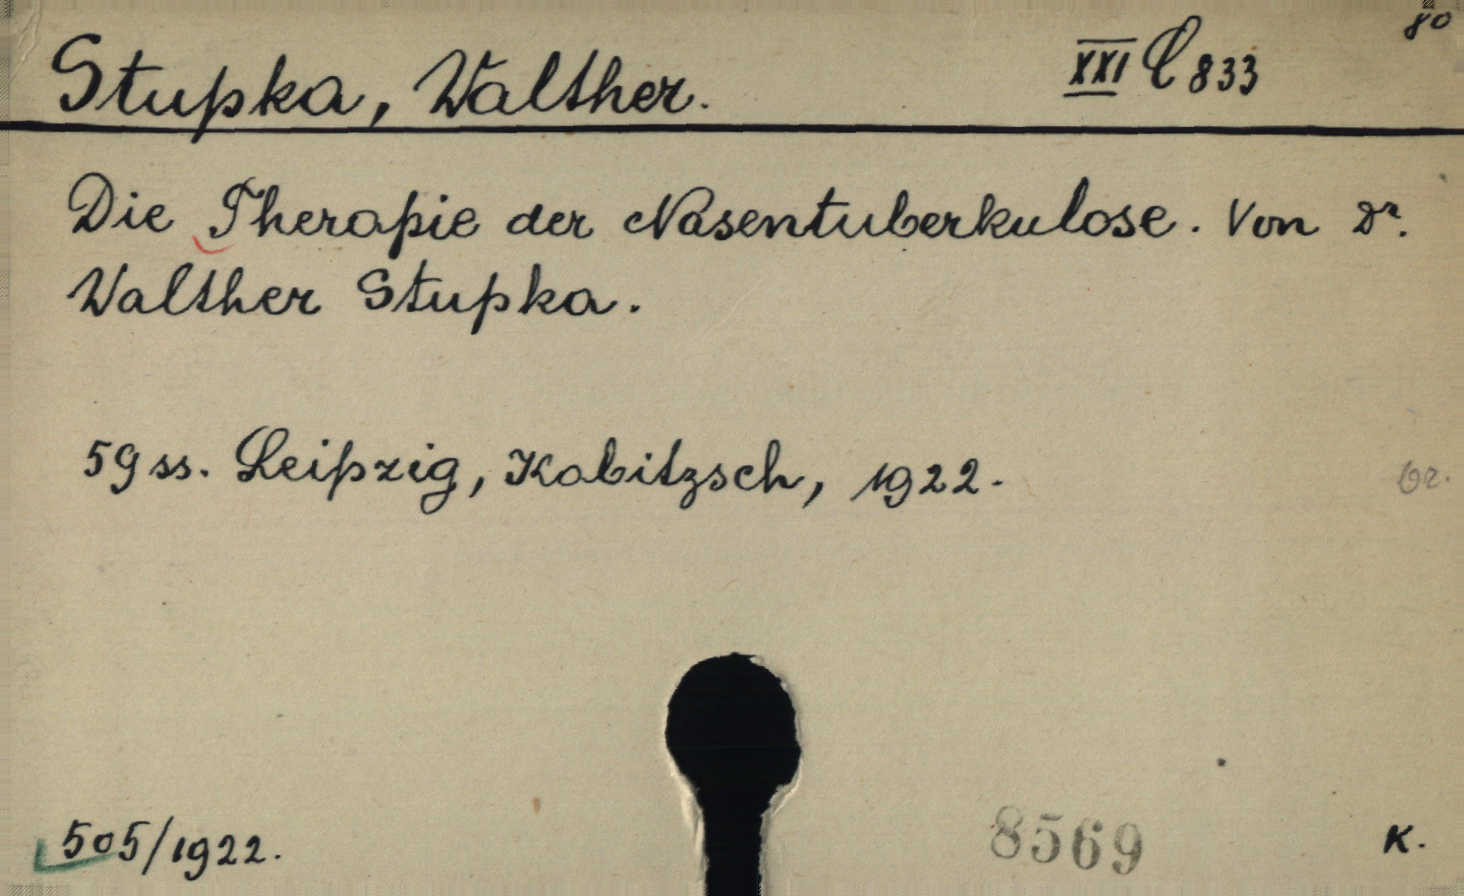 8°
Stupka, Walther. XXI C 833
Die Therapie der Nasentuberkulose. Von Dr.
Walther Stupka.
59 ss. Leipzig, Kabitzsch, 1922.
br.
505/1922. 8569 K.